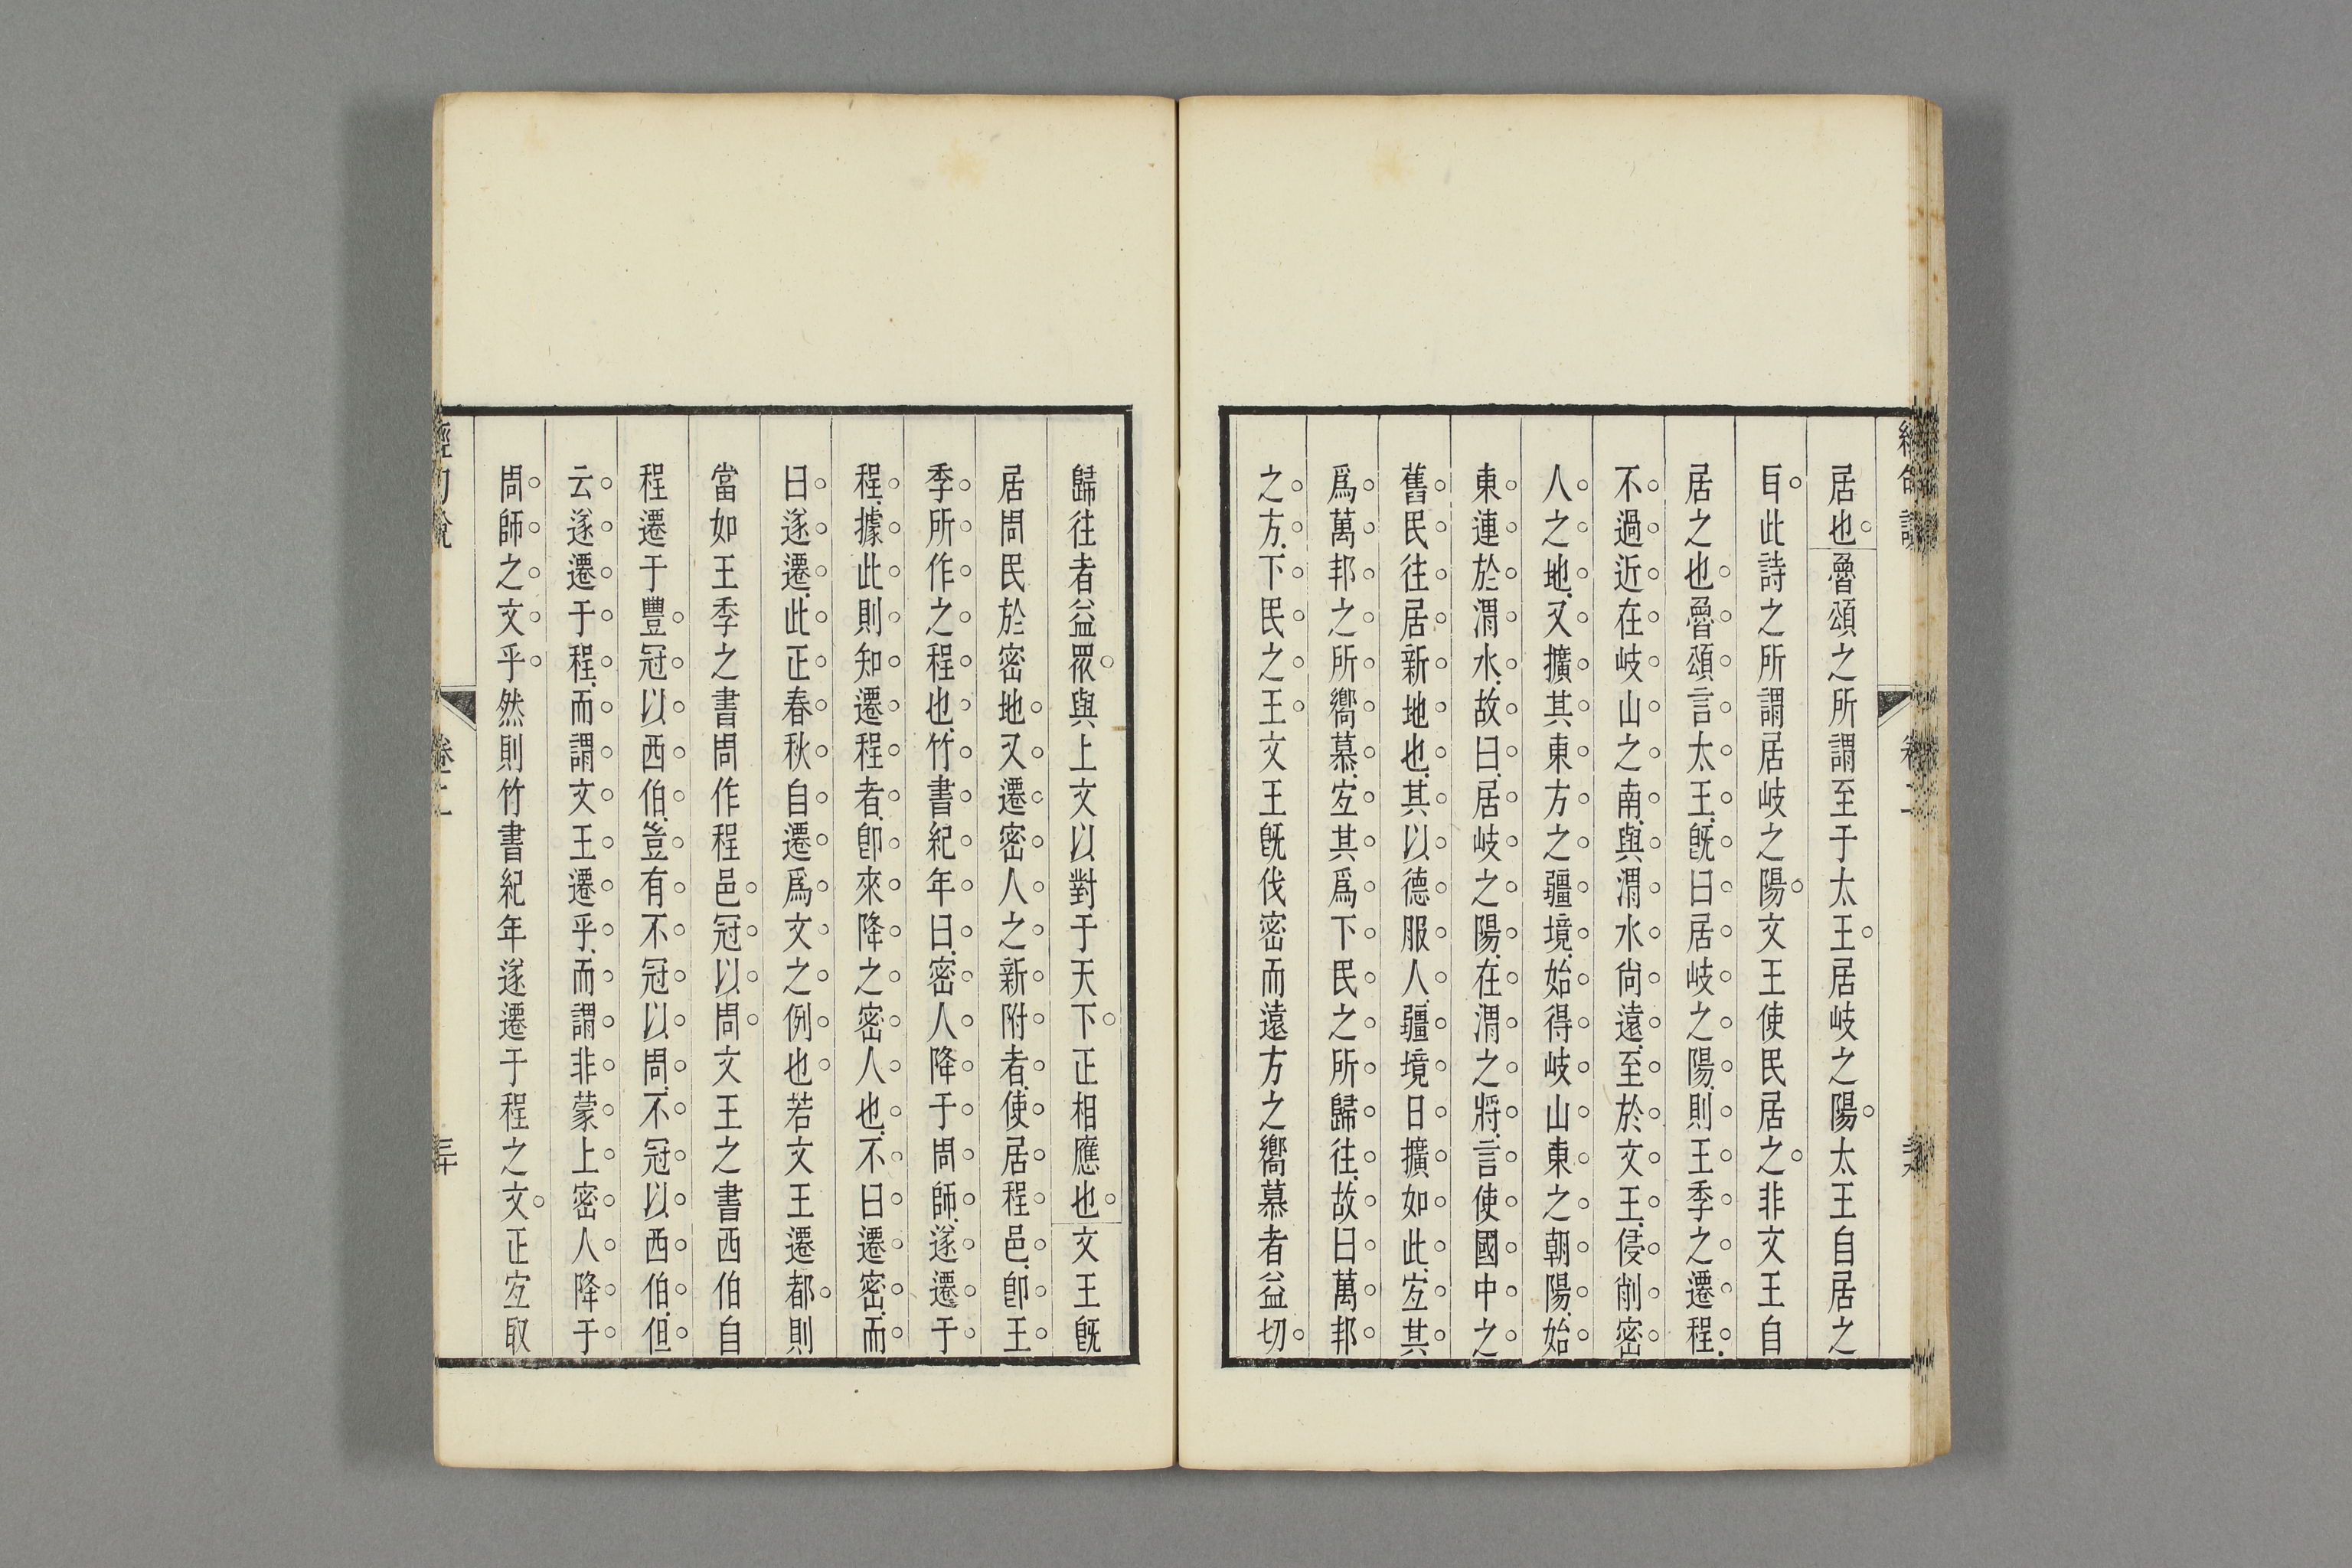 居也魯頌之所謂至于太王居岐之陽太王自居之
㠯此詩之所謂居岐之陽文王使民居之非文王自
居之也魯頌言太王旣曰居岐之陽則王季之遷程
不過近在岐山之南與渭水尙遠至於文王侵削密
人之地又擴其東方之疆境始得岐山東之朝陽始
東連於渭水故曰居岐之陽在渭之將言使國中之
舊民往居新地也其以德服人疆境日擴如此宐其
爲萬邦之所嚮慕宐其爲下民之所歸往故曰萬邦
之方下民之王文王旣伐密而遠方之嚮慕者益切
歸往者益眾與上文以對于天下正相應也文王旣
居周民於密地又遷密人之新附者使居程邑卽王
季所作之程也竹書紀年曰密人降于周師遂遷于
程據此則知遷程者卽來降之密人也不曰遷密而
曰遂遷此正春秋自遷爲文之例也若文王遷都則
當如王季之書周作程邑冠以周文王之書西伯自
程遷于豐冠以西伯豈有不冠以周不冠以西伯但
云遂遷于程而謂文王遷乎而謂非蒙上密人降于
周師之文乎然則竹書紀年遂遷于程之文正宐取